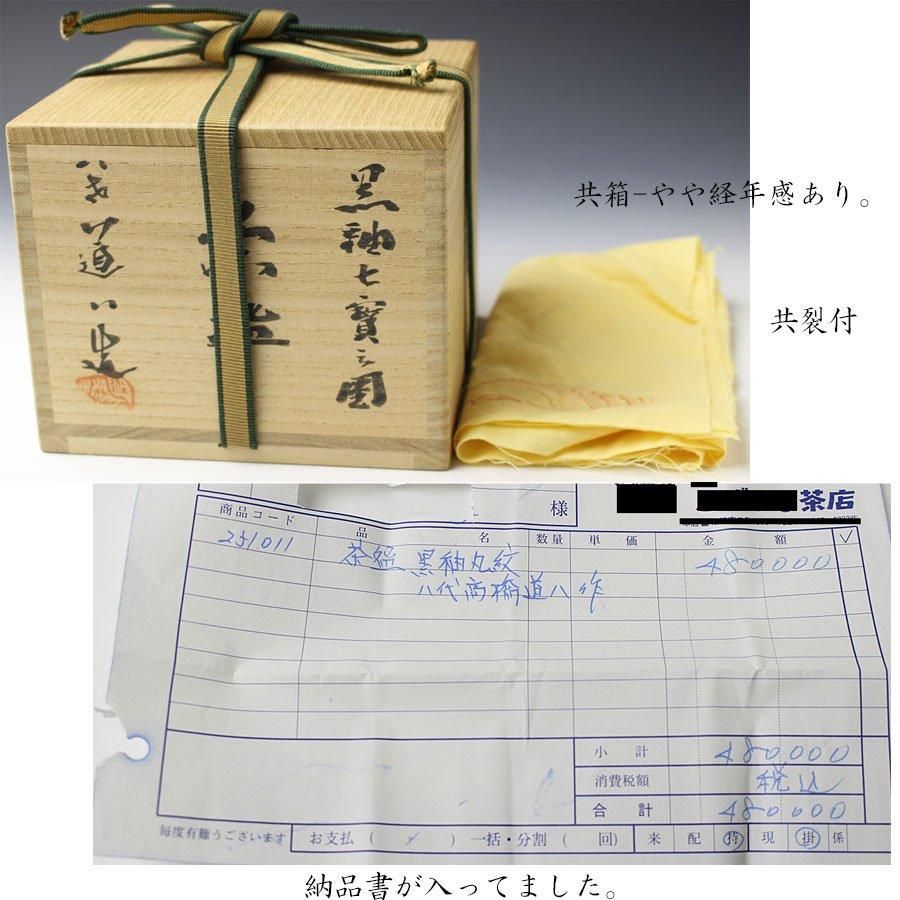 黒釉七寳之図
茶盌
八世道八造
共箱-やや経年感あり。
共裂付
様
茶店
商品コード 品 名 数量 単価 金 額 ✓
251011 茶盌 黒釉丸紋 480000
八代高橋道八作
小 計 480,000
消費税額 税込
合 計 480,000
毎度有難うございます お支払 ( ) 一括・分割 ( 回) 来 配 持 現 掛 係
納品書が入ってました。